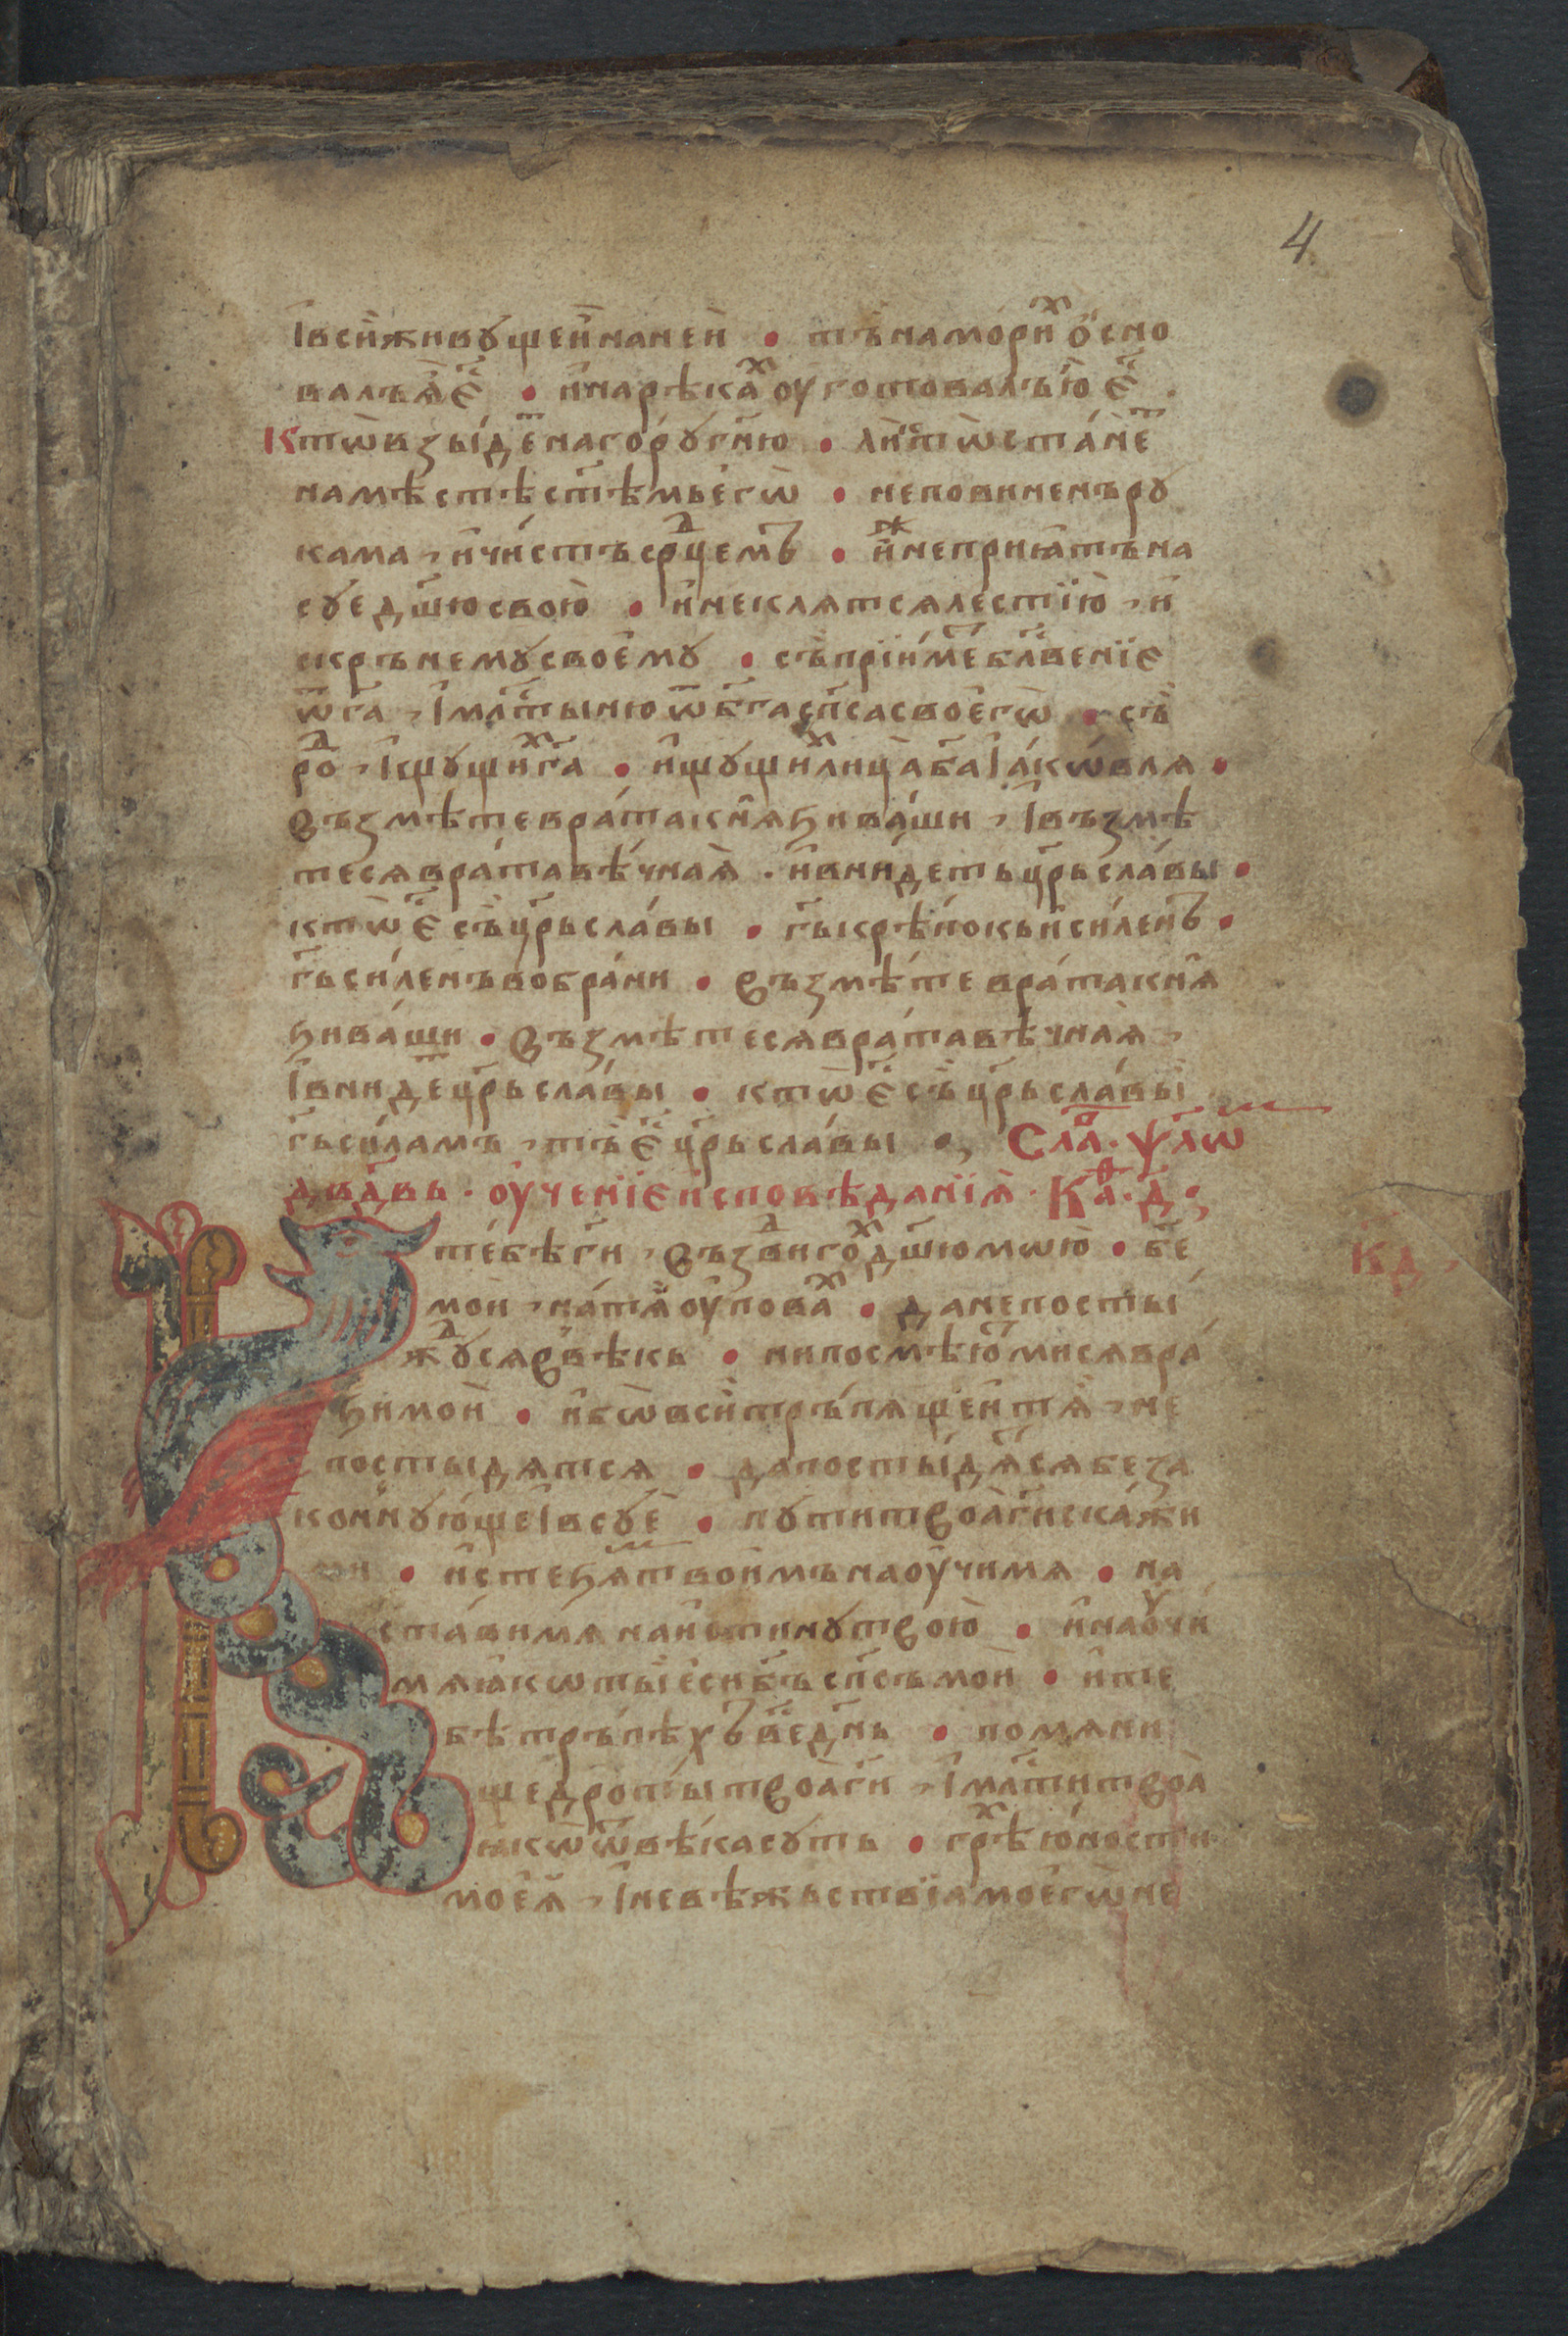 4
І҆вси҆живꙋщеи҆нанеи҆ • тъ҆намори҆ⷯ ѻ҆сно
валъѧ҆є҆ⷭ • и҆нарѣка҆ⷯ оуготовалъю҆ є҆ⷭ .
Ктѡ҆взы́деⷮ нагорꙋгн҃ю • ли҆ктѡ҆ста́неⷮ
намѣстѣст҃ѣмьего҆ѡ • неповиненърꙋ
кама , и҆чи́стъср҃дцемъ • и҆ⷤнепрїꙗтъна
сꙋедш҃юсвою҆ • и҆неклѧтсѧлестїю҆ , и҆
скрънемꙋсвоемꙋ • съ҆прїи́меⷮ бл҃вениѥ
ѿг҃а , і҆млⷭ҇тынюѿбг҃асп҃сасвоегѡ҆ • съ҆
роⷣ , і҆щꙋщи́ⷯг҃а • и҆щꙋщи́ⷯлица҆б҃аі҆а́кѡвлѧ •
Възмѣтевра́такн҃ѧꙁ҆ива́ши , І҆въꙁмѣ
тесѧвра́тавѣ́чнаꙗ҆ . и҆вни́детьцр҃ьсла́вы •
ктѡ҆ є҆ⷭ съ҆цр҃ьсла́вы • гь҃крѣ́покъи҆си́ленъ •
гь҃си́ленъвобра́ни • Възмѣ́тевра́такн҃ѧ
ꙉива́ши • Възмѣтесѧвра́тавѣ́чнаꙗ҆ ,
І҆вни́деⷮцр҃ьсла́вы • ктѡ҆ є҆ⷭ съ҆цр҃ьсла́вы
гь҃си́ламъ , тъ҆ є҆ⷭ цр҃ьсла́вы • Слаⷡ҇ . ѱл҃ѡⷨ
дв҃двь . оучениѥи҆сповѣданїꙗ҆ . Каⷴ . д҃ •
К҃д ,
тебѣ́ги҃ , Възⷣвиго́ⷯдш҃юмѡю҆ • бе҃
мои҆ , на́тѧоуповаⷯ • данепосты́
жⷣꙋсѧвъвѣкь • нипосмѣю́ⷮмисѧвра́
ꙉимои҆ • и҆бѡ҆вси҆трьпѧщеи҆тѧ҆ , не
постыдѧтсѧ • дапосты́дѧⷮсѧбеза
коннꙋющеі҆всꙋе҆ • пꙋтитвоа҆ги҃скажи
ми • и҆стеꙉѧ́мтвои҆мънаоучимѧ • на
ста́вимѧнаи҆стинꙋтвою҆ • и҆наоучи
мѧꙗкѡты҆есибг҃ъсп҃съмои҆ • и҆те
бѣтрьпѣхъвеⷭдн҃ь • помѧни
щедро́тытвоа҆ги҃ , І҆млⷭ҇титвоа҆
ꙗкѡ҆ѿвѣ́касꙋть • грѣⷯ ю҆ности
моеѧ҆ , І҆невѣжьствїамоегѡ҆не